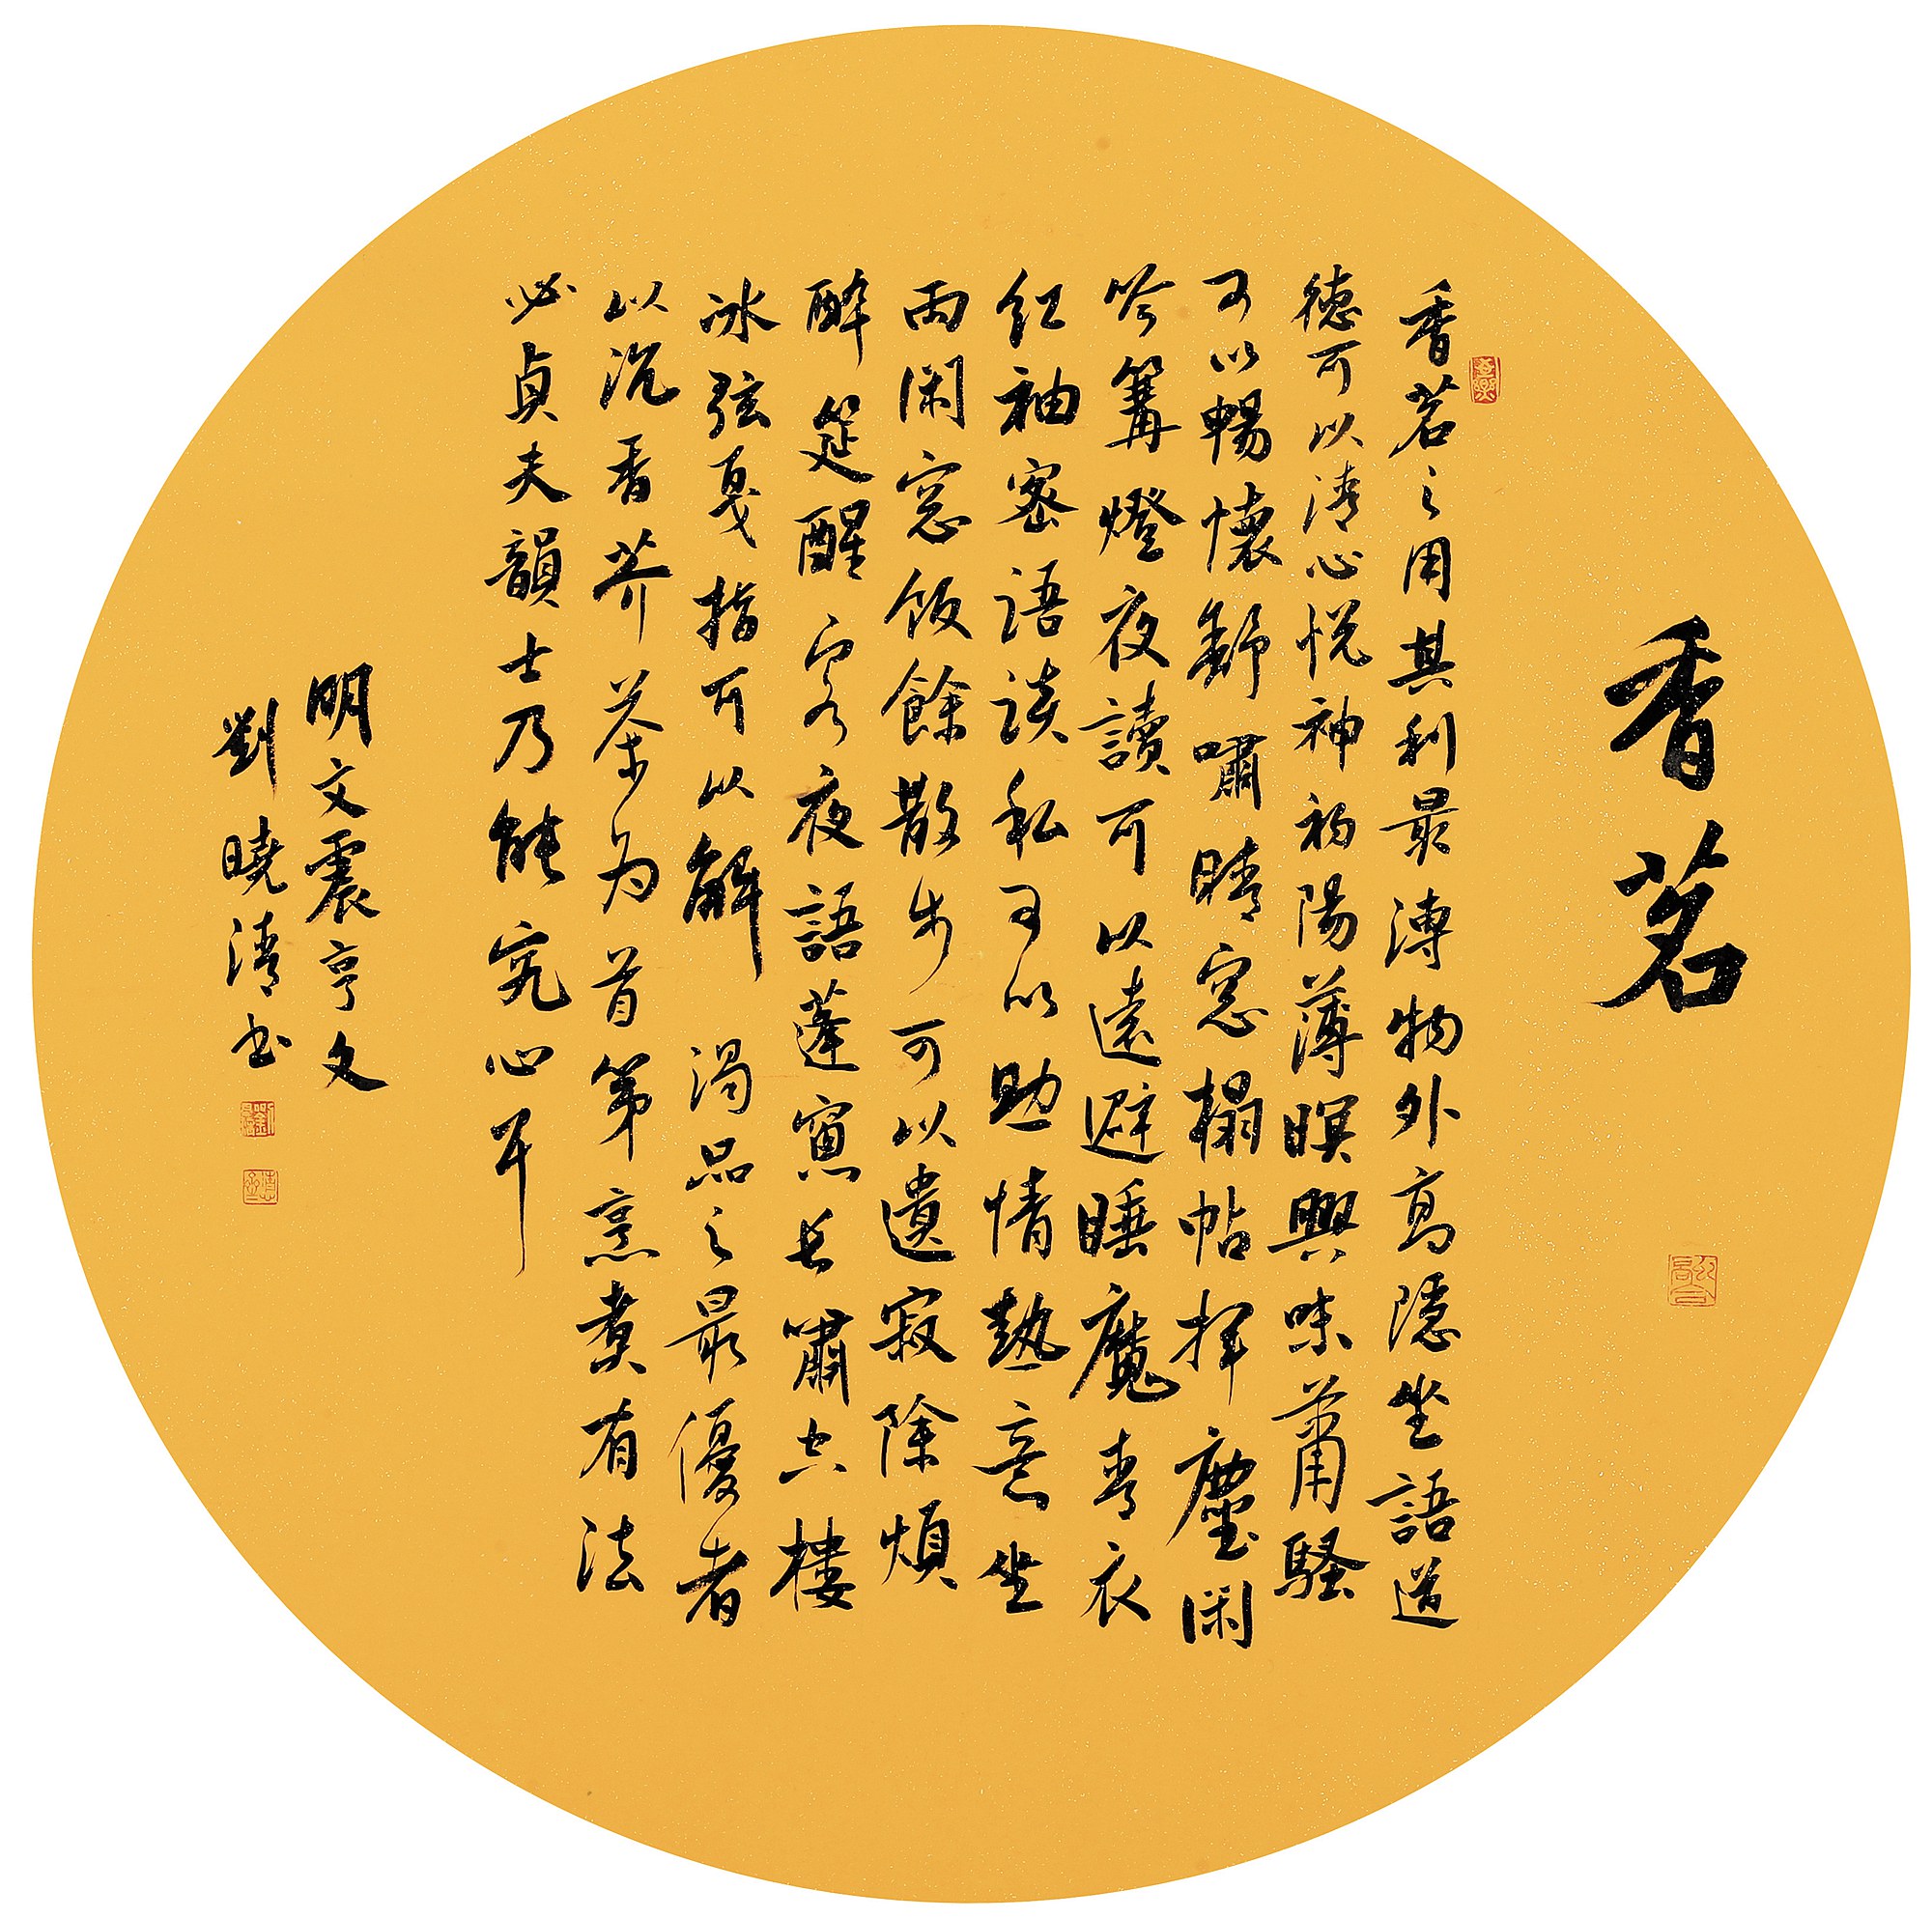 香茗
香茗之用其利最溥物外高隱坐語道
德可以清心悅神初陽薄暝興味蕭騷
可以暢懷舒嘯晴窓榻帖揮麈閑
吟篝燈夜讀可以遠避睡魔青衣
紅袖密語談私可以助情熱意坐
雨閑窓飯餘散步可以遺寂除煩
醉筵醒客夜語蓬窻長嘯空樓
冰弦戛指可以解渴品之最優者
以沉香芥茶为首第烹煮有法
必貞夫韻士乃能究心耳
明文震亨文
劉曉清书